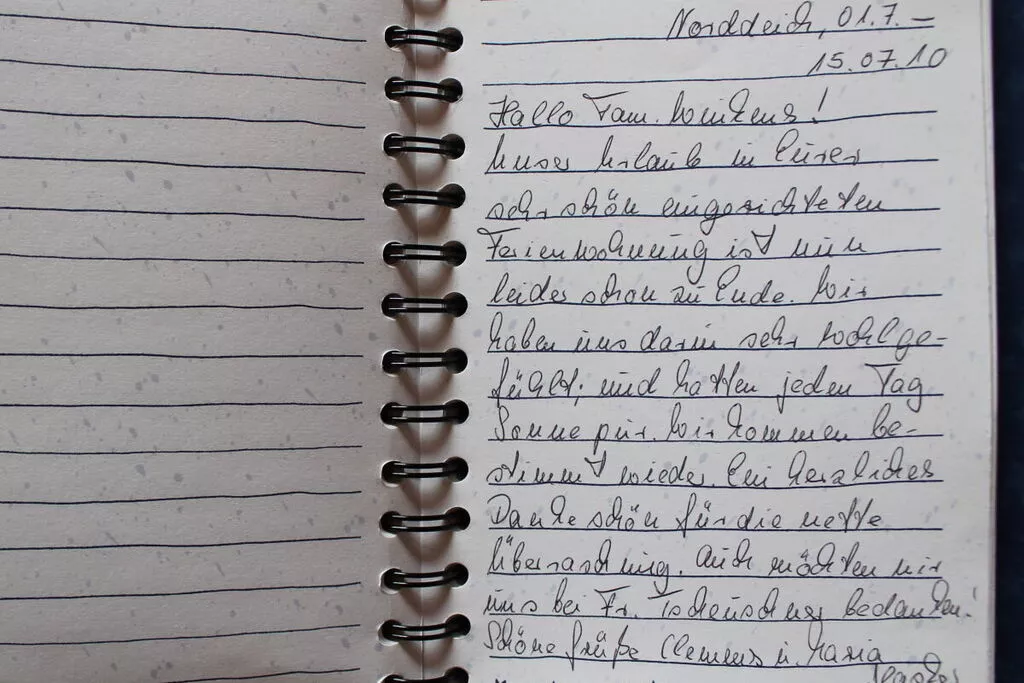 Norddeich, 01.7. –
15.07.10
Hallo Fam. Winkens!
Unser Urlaub in Eurer
sehr schön eingerichteten
Ferienwohnung ist nun
leider schon zu Ende. Wir
haben uns darin sehr wohlge-
fühlt; und hatten jeden Tag
Sonne pur. Wir kommen be-
stimmt wieder. Ein herzliches
Dankeschön für die nette
Überraschung. Auch möchten wir
uns bei Fr. bedanken!
Schöne Grüße Clemens u. Maria